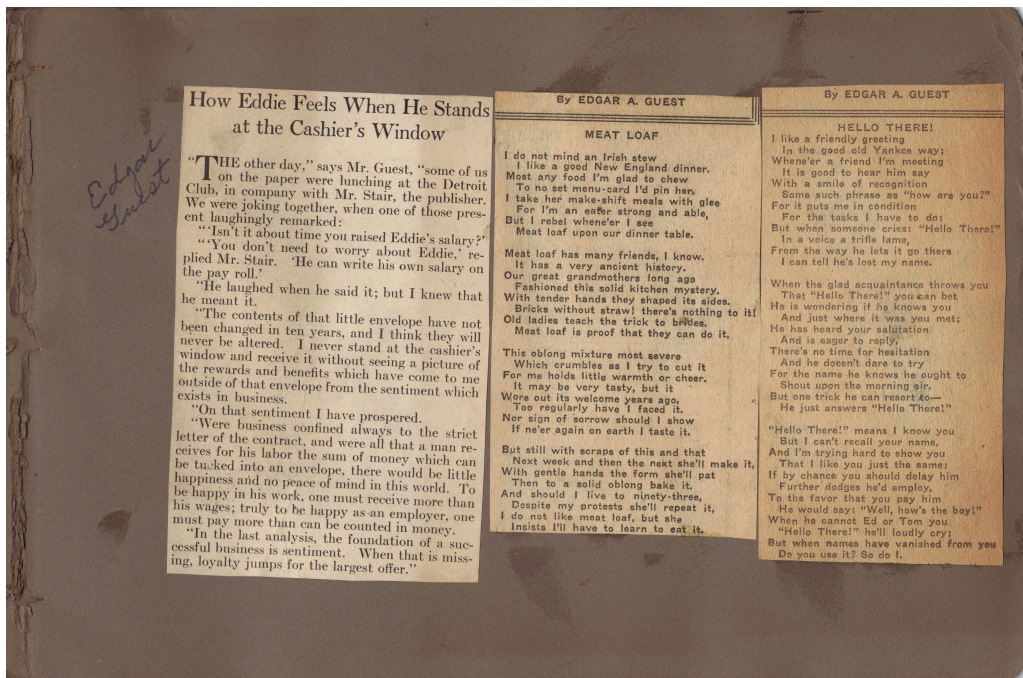 Edgar
Guest
How Eddie Feels When He Stands
at the Cashier's Window
"THE other day," says Mr. Guest, "some of us
on the paper were lunching at the Detroit
Club, in company with Mr. Stair, the publisher.
We were joking together, when one of those pres-
ent laughingly remarked:
"'Isn't it about time you raised Eddie's salary?'
"'You don't need to worry about Eddie,' re-
plied Mr. Stair. 'He can write his own salary on
the pay roll.'
"He laughed when he said it; but I knew that
he meant it.
"The contents of that little envelope have not
been changed in ten years, and I think they will
never be altered. I never stand at the cashier's
window and receive it without seeing a picture of
the rewards and benefits which have come to me
outside of that envelope from the sentiment which
exists in business.
"On that sentiment I have prospered.
"Were business confined always to the strict
letter of the contract, and were all that a man re-
ceives for his labor the sum of money which can
be tucked into an envelope, there would be little
happiness and no peace of mind in this world. To
be happy in his work, one must receive more than
his wages; truly to be happy as an employer, one
must pay more than can be counted in money.
"In the last analysis, the foundation of a suc-
cessful business is sentiment. When that is miss-
ing, loyalty jumps for the largest offer."
By EDGAR A. GUEST
MEAT LOAF
I do not mind an Irish stew
I like a good New England dinner.
Most any food I'm glad to chew
To no set menu-card I'd pin her.
I take her make-shift meals with glee
For I'm an eater strong and able,
But I rebel whene'er I see
Meat loaf upon our dinner table.
Meat loaf has many friends, I know.
It has a very ancient history.
Our great grandmothers long ago
Fashioned this solid kitchen mystery.
With tender hands they shaped its sides.
Bricks without straw! there's nothing to it!
Old ladies teach the trick to brides.
Meat loaf is proof that they can do it.
This oblong mixture most severe
Which crumbles as I try to cut it
For me holds little warmth or cheer.
It may be very tasty, but it
Wore out its welcome years ago,
Too regularly have I faced it.
Nor sign of sorrow should I show
If ne'er again on earth I taste it.
But still with scraps of this and that
Next week and then the next she'll make it,
With gentle hands the form she'll pat
Then to a solid oblong bake it.
And should I live to ninety-three,
Despite my protests she'll repeat it,
I do not like meat loaf, but she
Insists I'll have to learn to eat it.
By EDGAR A. GUEST
HELLO THERE!
I like a friendly greeting
In the good old Yankee way;
Whene'er a friend I'm meeting
It is good to hear him say
With a smile of recognition
Some such phrase as "how are you?"
For it puts me in condition
For the tasks I have to do;
But when someone cries: "Hello There!"
In a voice a trifle lame,
From the way he lets it go there
I can tell he's lost my name.
When the glad acquaintance throws you
That "Hello There!" you can bet
He is wondering if he knows you
And just where it was you met;
He has heard your salutation
And is eager to reply,
There's no time for hesitation
And he doesn't dare to try
For the name he knows he ought to
Shout upon the morning air.
But one trick he can resort to—
He just answers "Hello There!"
"Hello There!" means I know you
But I can't recall your name,
And I'm trying hard to show you
That I like you just the same;
If by chance you should delay him
Further dodges he'd employ,
To the favor that you pay him
He would say: "Well, how's the boy!"
When he cannot Ed or Tom you
"Hello There!" he'll loudly cry;
But when names have vanished from you
Do you use it? So do I.